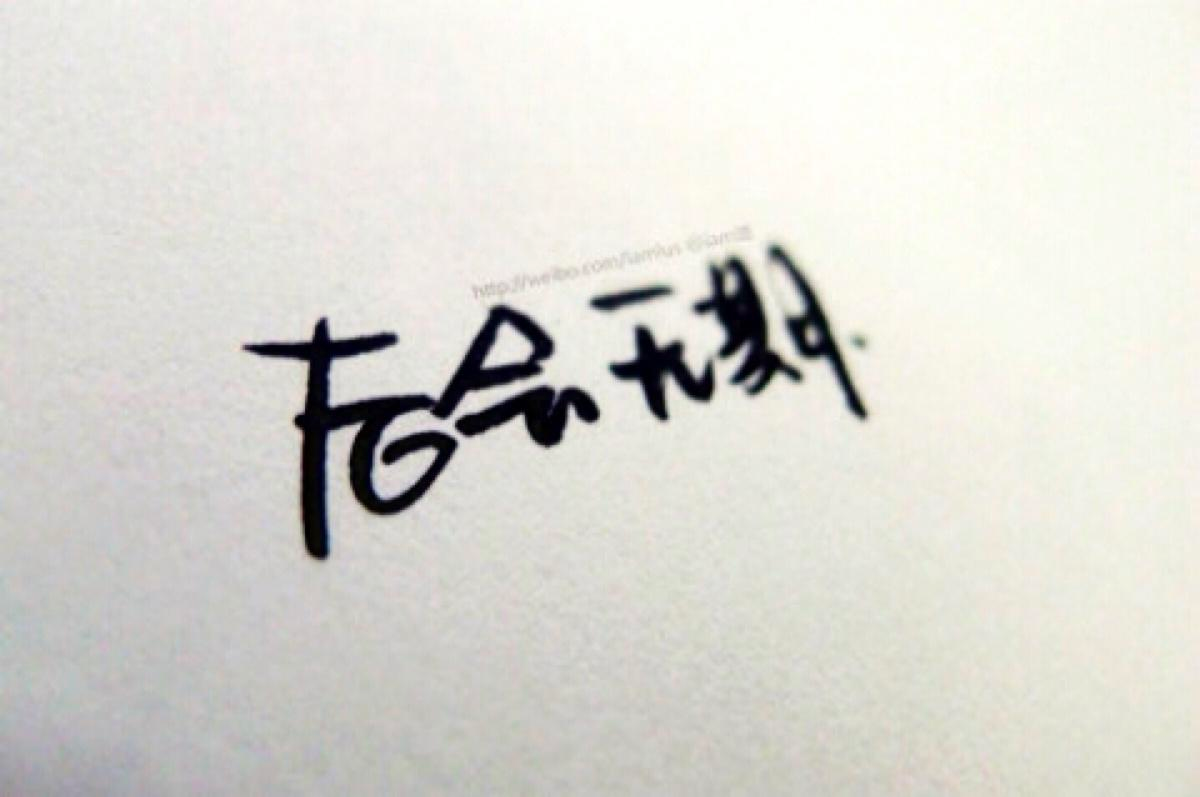 http://weibo.com/iamlus @iam璐
后会无期.